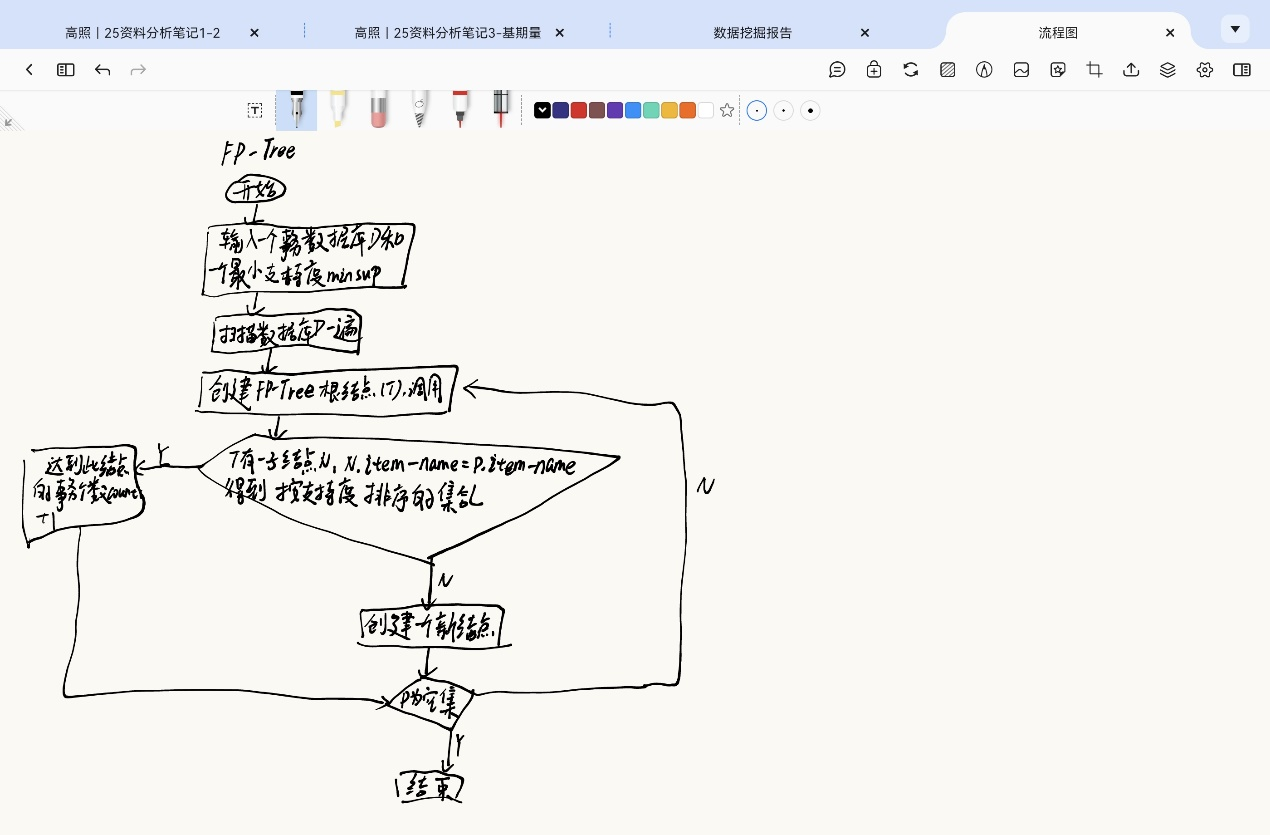 高照丨25资料分析笔记1-2
高照丨25资料分析笔记3-基期量
数据挖掘报告
流程图
FP-Tree
开始
输入一个事务数据库D和
一个最小支持度minsup
扫描数据库D一遍
创建FP-Tree根结点(T),调用
Y
T有一子结点N, N.item-name=P.item-name
得到 按支持度排序的集合
达到此结点
的事务个数count
+1
N
N
创建一个新结点
P为空集
Y
结束